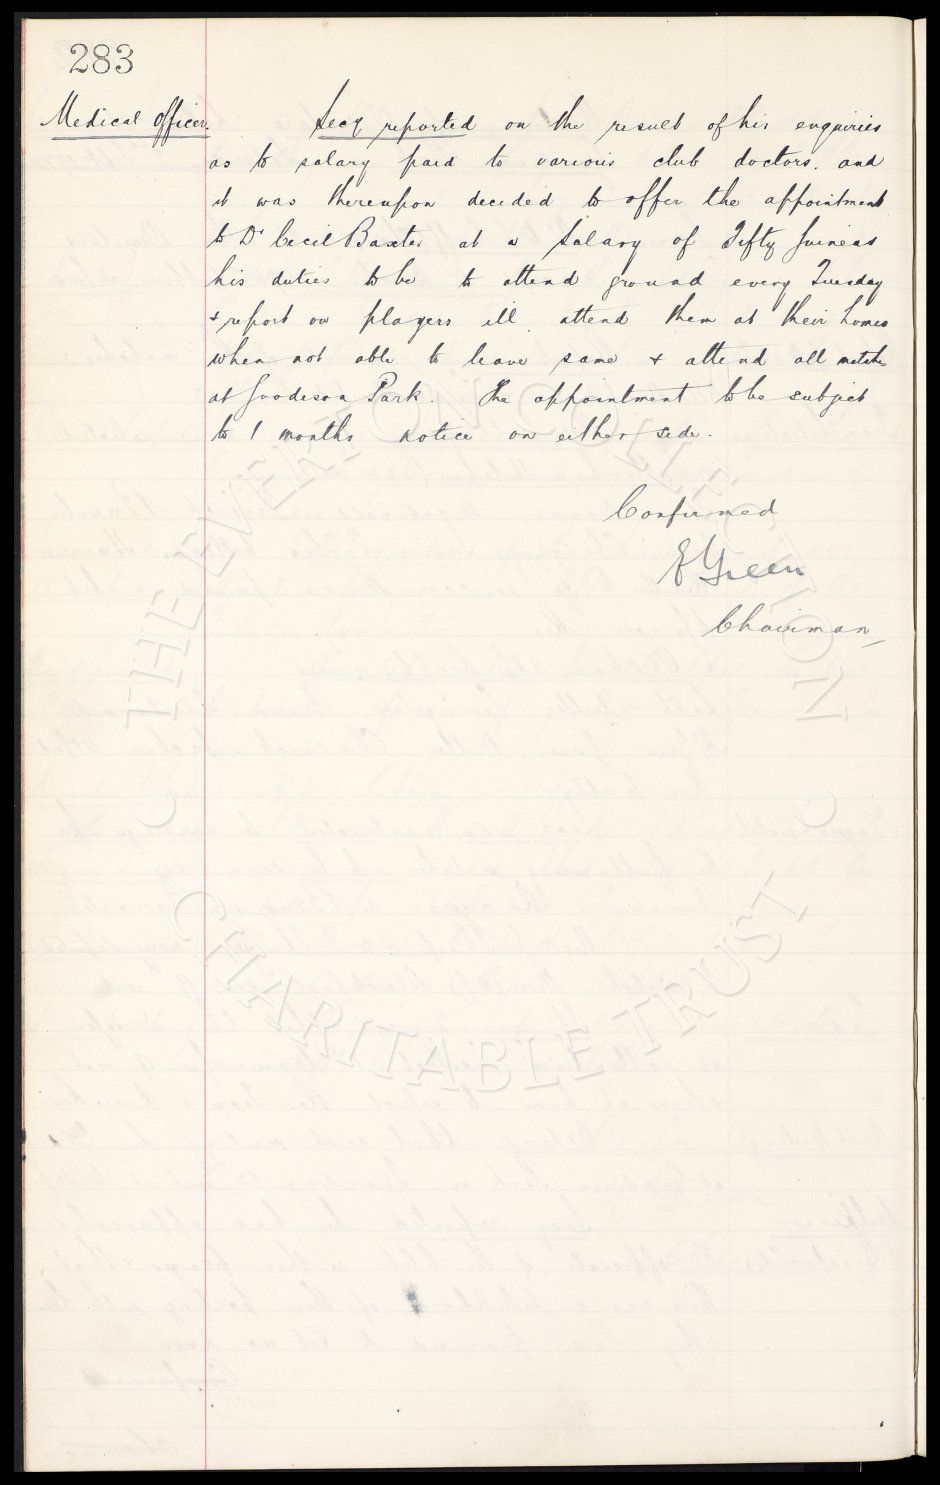 283
Medical Officer.
Secy reported on the result of his enquiries
as to salary paid to various club doctors. and
it was thereupon decided to offer the appointment
to Dr Cecil Baxter at a Salary of Fifty Guineas
his duties to be to attend ground every Tuesday
& report on players ill. attend them at their homes
when not able to leave same & attend all matches
at Goodison Park. The appointment to be subject
to 1 months notice on either side.
Confirmed
E Green
Chairman
THE EVERTON COLLECTION
CHARITABLE TRUST